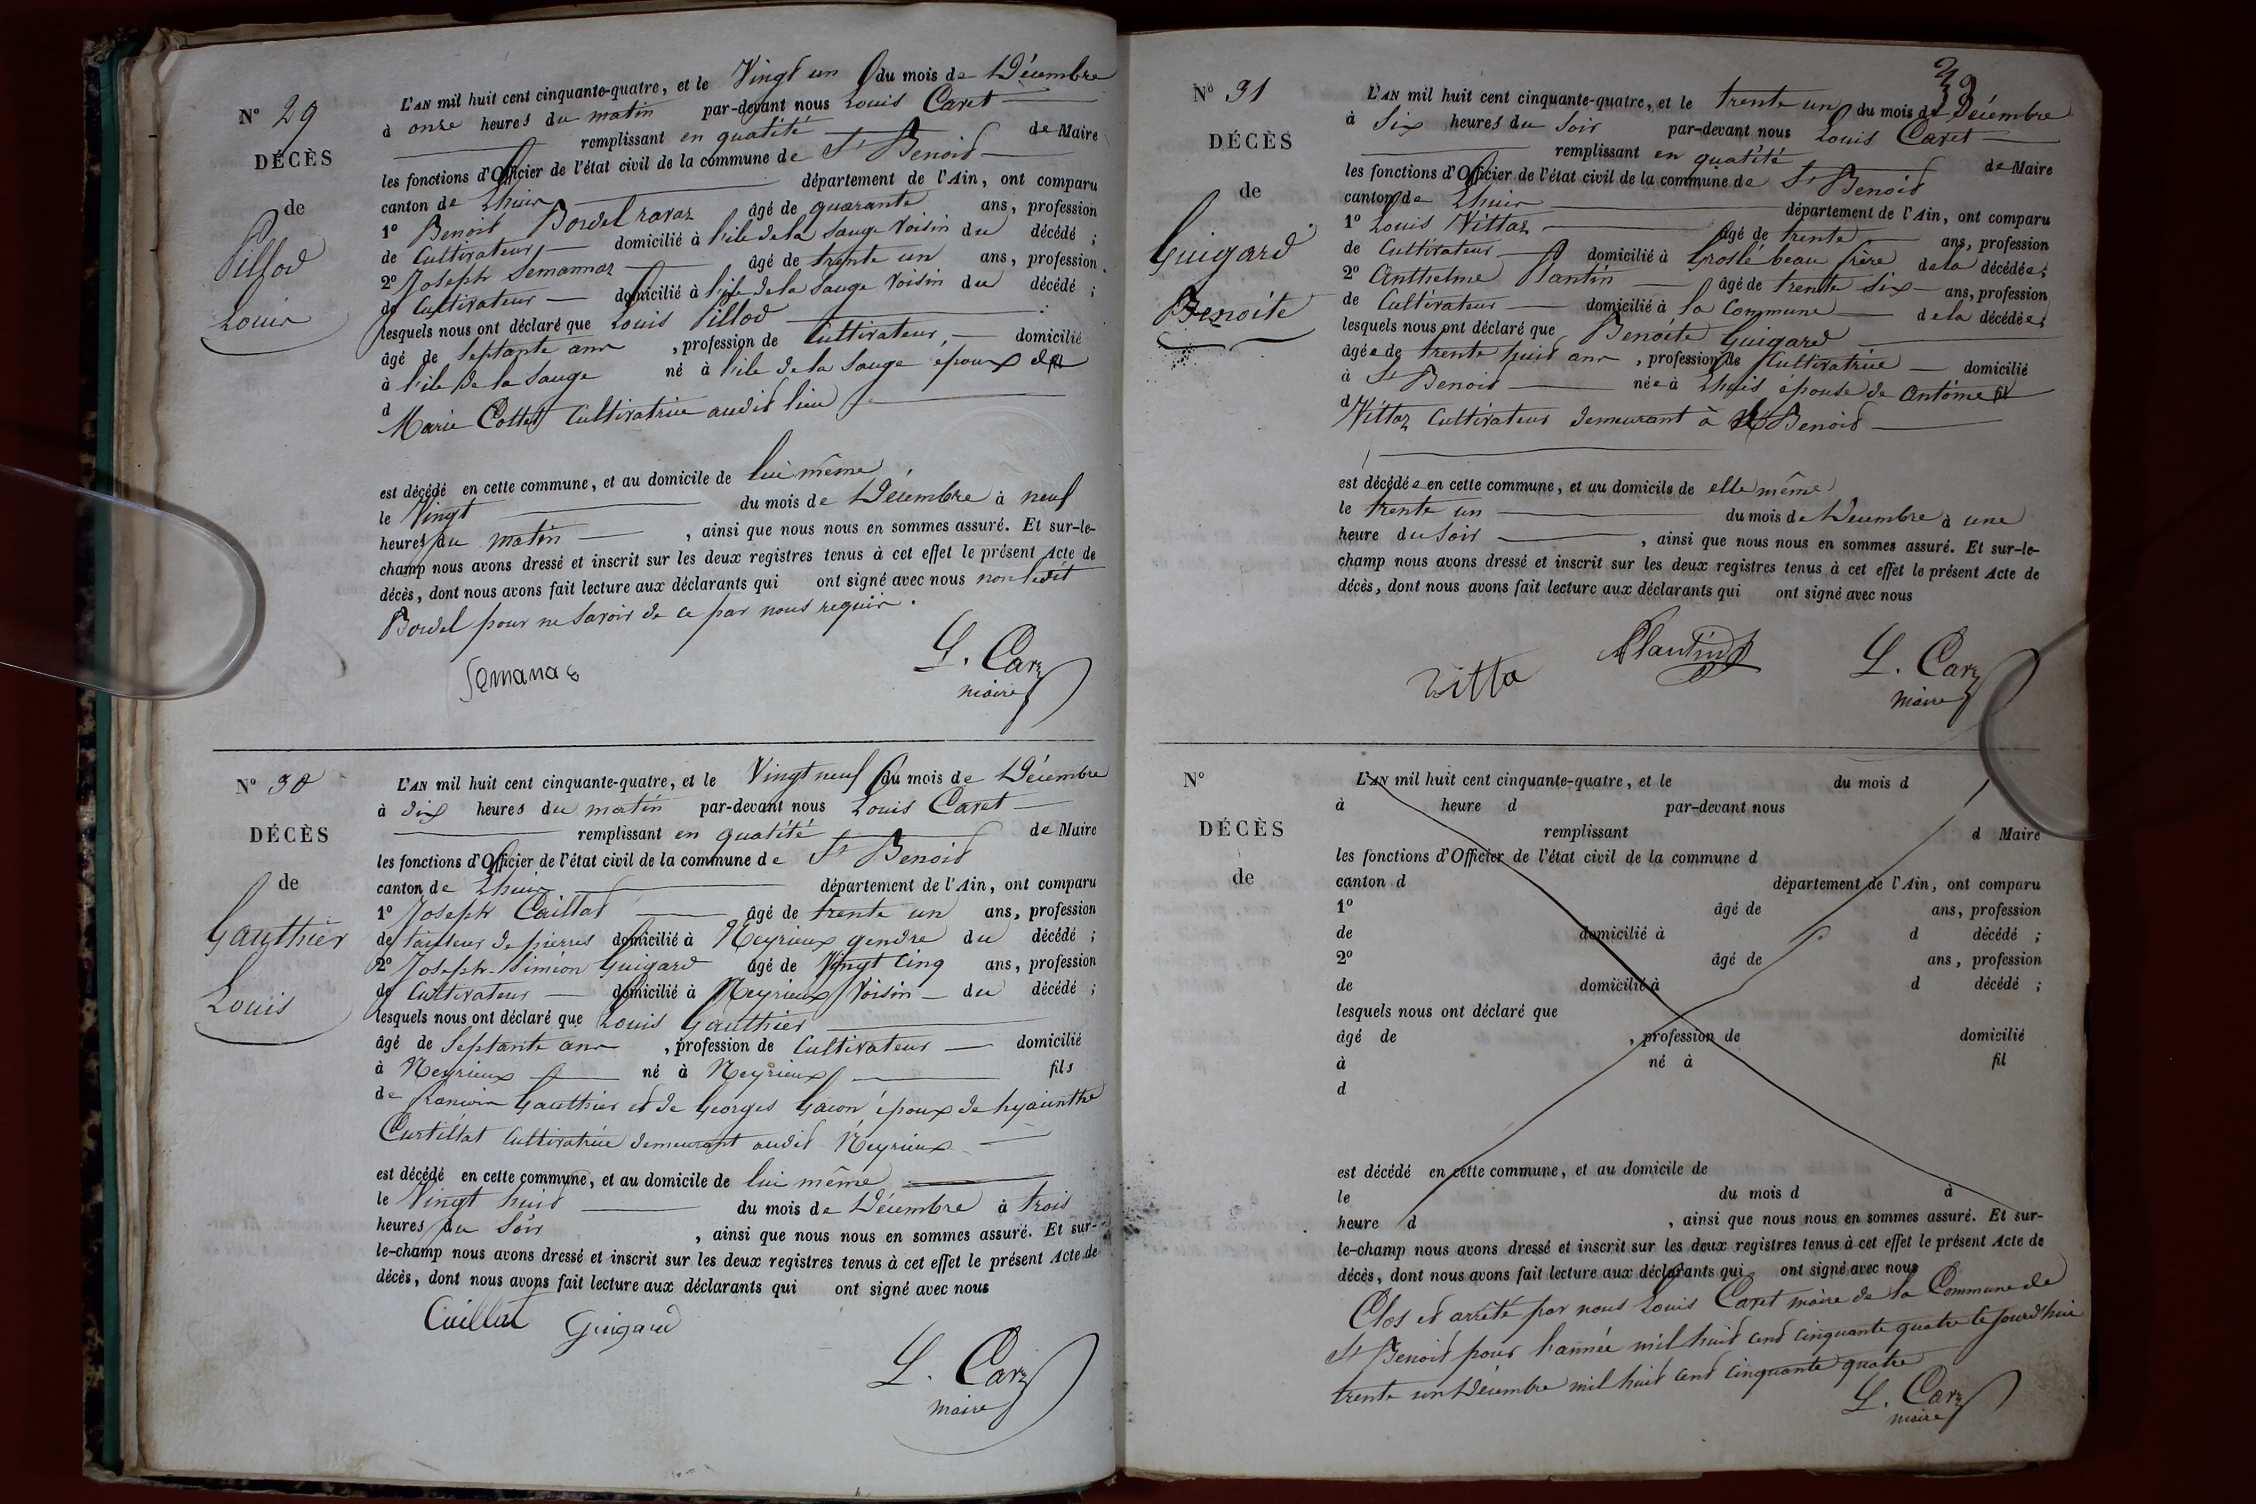 N° 29
DÉCÈS
de
Pillod
Louis
L'AN mil huit cent cinquante-quatre, et le Vingt un du mois de Décembre
à onze heures du matin par-devant nous Louis Caret
remplissant en qualité de Maire
les fonctions d'Officier de l'état civil de la commune de St Benoid
canton de Lhuis département de l'Ain, ont comparu
1° Benoit Bordel ravaz âgé de quarante ans, profession
de Cultivateur domicilié à l'ile de la Sauge Voisin du décédé ;
2° Joseph Semannaz âgé de trente un ans, profession
de Cultivateur domicilié à l'ile de la Sauge Voisin du décédé ;
lesquels nous ont déclaré que Louis Pillod
âgé de Septante ans, profession de Cultivateur, domicilié
à l'ile de la Sauge né à l'ile de la Sauge époux de
d
Marie Cottet Cultivatrice audit lieu
est décédé en cette commune, et au domicile de lui même
le Vingt du mois de Décembre à neuf
heures du matin, ainsi que nous nous en sommes assuré. Et sur-le-
champ nous avons dressé et inscrit sur les deux registres tenus à cet effet le présent Acte de
décès, dont nous avons fait lecture aux déclarants qui ont signé avec nous non ledit
Bordel pour ne Savoir de ce par nous requis.
Semanas
L. Carz
maire
N° 30
DÉCÈS
de
Gauthier
Louis
L'AN mil huit cent cinquante-quatre, et le Vingt neuf du mois de Décembre
à dix heures du matin par-devant nous Louis Caret
remplissant en qualité de Maire
les fonctions d'Officier de l'état civil de la commune de St Benoid
canton de Lhuis département de l'Ain, ont comparu
1° Joseph Caillat âgé de trente un ans, profession
de tailleur de pierres domicilié à Neyrieux gendre du décédé ;
2° Joseph-Siméon Guigard âgé de Vingt Cinq ans, profession
de Cultivateur domicilié à Neyrieux Voisin du décédé ;
lesquels nous ont déclaré que Louis Gauthier
âgé de Septante ans, profession de Cultivateur domicilié
à Neyrieux né à Neyrieux fils
de francois Gauthier et de Georges Gacon époux de hyacinthe
Curtillat Cultivatrice demeurant audit Neyrieux
est décédé en cette commune, et au domicile de lui même
le Vingt huit du mois de Décembre à trois
heures du Soir, ainsi que nous nous en sommes assuré. Et sur-
le-champ nous avons dressé et inscrit sur les deux registres tenus à cet effet le présent Acte de
décès, dont nous avons fait lecture aux déclarants qui ont signé avec nous
Caillat Guigard
L. Carz
maire
N° 31
DÉCÈS
de
Guigard
Benoite
L'AN mil huit cent cinquante-quatre, et le trente un du mois de Décembre
à Six heures du Soir par-devant nous Louis Caret
remplissant en qualité de Maire
les fonctions d'Officier de l'état civil de la commune de St Benoid
canton de Lhuis département de l'Ain, ont comparu
1° Louis Vittaz âgé de trente ans, profession
de Cultivateur domicilié à Groslé beau frère dela décédée ;
2° Anthelme Plantin âgé de trente Six ans, profession
de Cultivateur domicilié à la Commune dela décédée ;
lesquels nous ont déclaré que Benoite Guigard
âgée de trente huit ans, profession de Cultivatrice domicilié
à St Benoid née à Lhuis épouse de Antoine fil
d
Vittaz Cultivateur demeurant à St Benoid
est décédée en cette commune, et au domicile de elle même
le trente un du mois de Décembre à une
heure du Soir, ainsi que nous nous en sommes assuré. Et sur-le-
champ nous avons dressé et inscrit sur les deux registres tenus à cet effet le présent Acte de
décès, dont nous avons fait lecture aux déclarants qui ont signé avec nous
Vitta APlantin
L. Carz
maire
N°
DÉCÈS
de
L'AN mil huit cent cinquante-quatre, et le du mois d
à heure d par-devant nous
remplissant d Maire
les fonctions d'Officier de l'état civil de la commune d
canton d département de l'Ain, ont comparu
1° âgé de ans, profession
de domicilié à d décédé ;
2° âgé de ans, profession
de domicilié à d décédé ;
lesquels nous ont déclaré que
âgé de, profession de domicilié
à né à fil
d
est décédé en cette commune, et au domicile de
le du mois d à
heure d, ainsi que nous nous en sommes assuré. Et sur-
le-champ nous avons dressé et inscrit sur les deux registres tenus à cet effet le présent Acte de
décès, dont nous avons fait lecture aux déclarants qui ont signé avec nous
Clos et arrêté par nous Louis Caret maire de la Commune de
St Benoid pour l'année mil huit cent cinquante quatre le jourd'hui
trente un Décembre mil huit cent cinquante quatre
L. Carz
maire